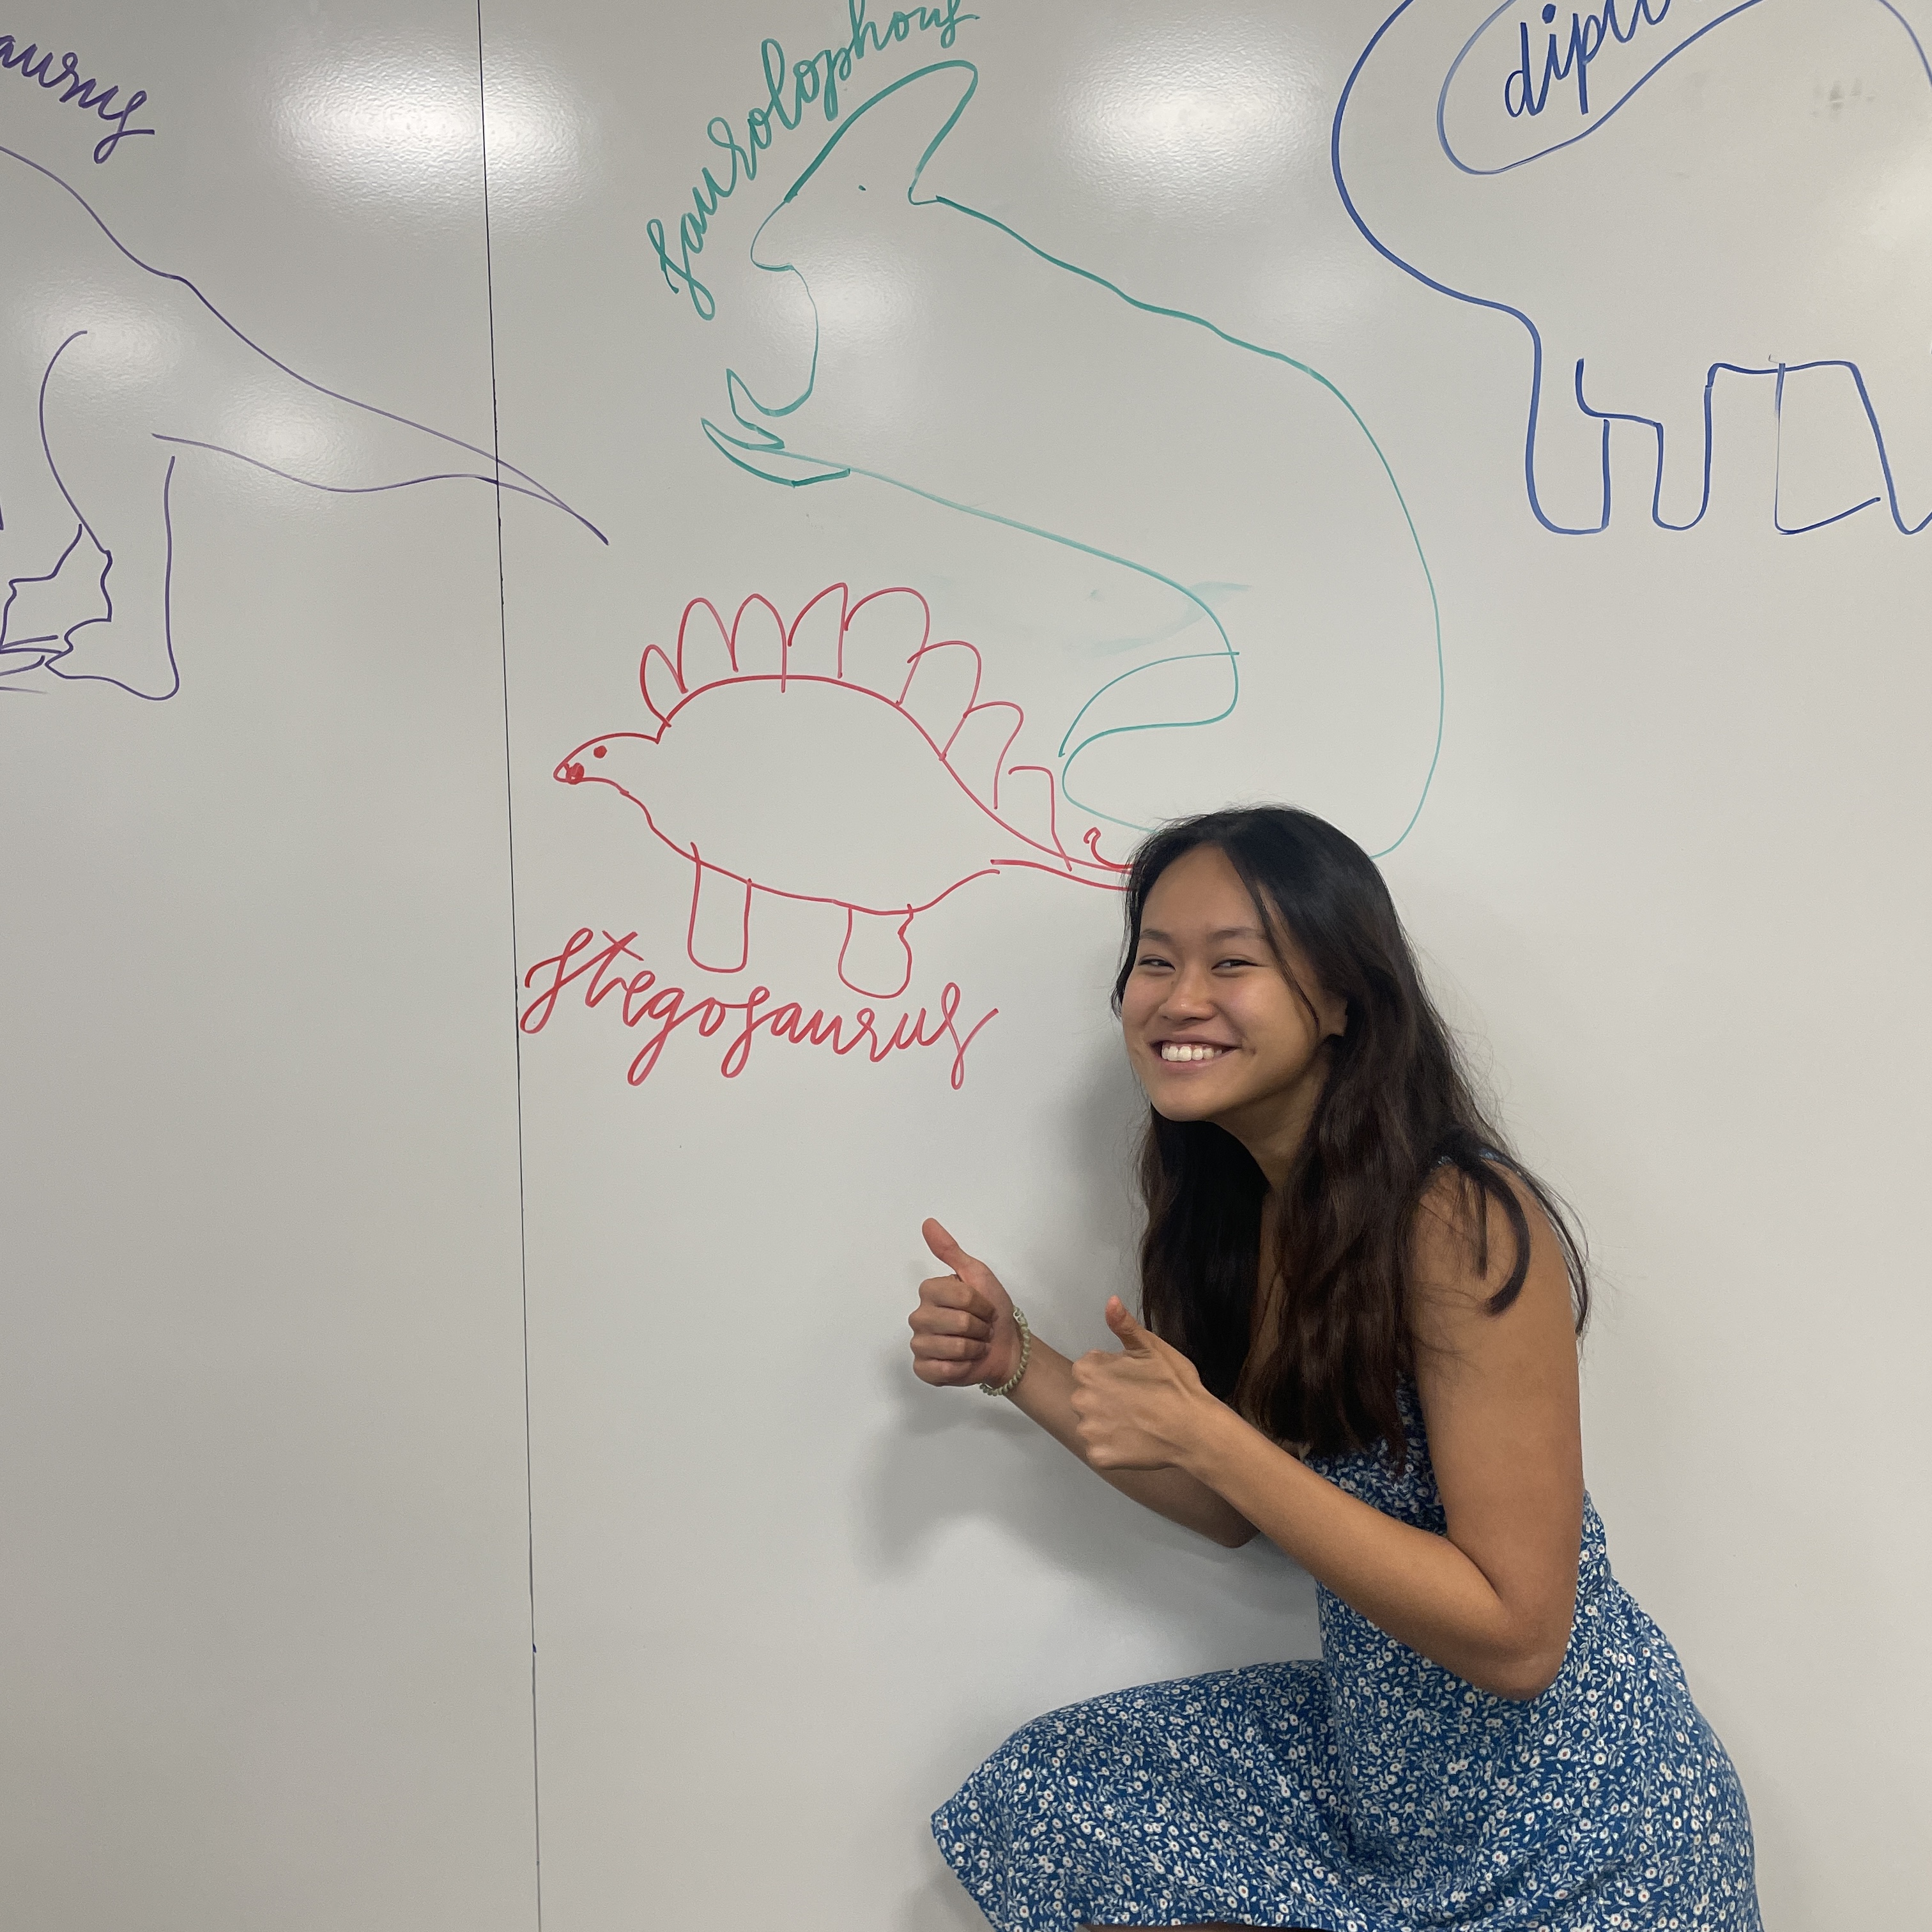 aurus
saurolophous
diplo
stegosaurus